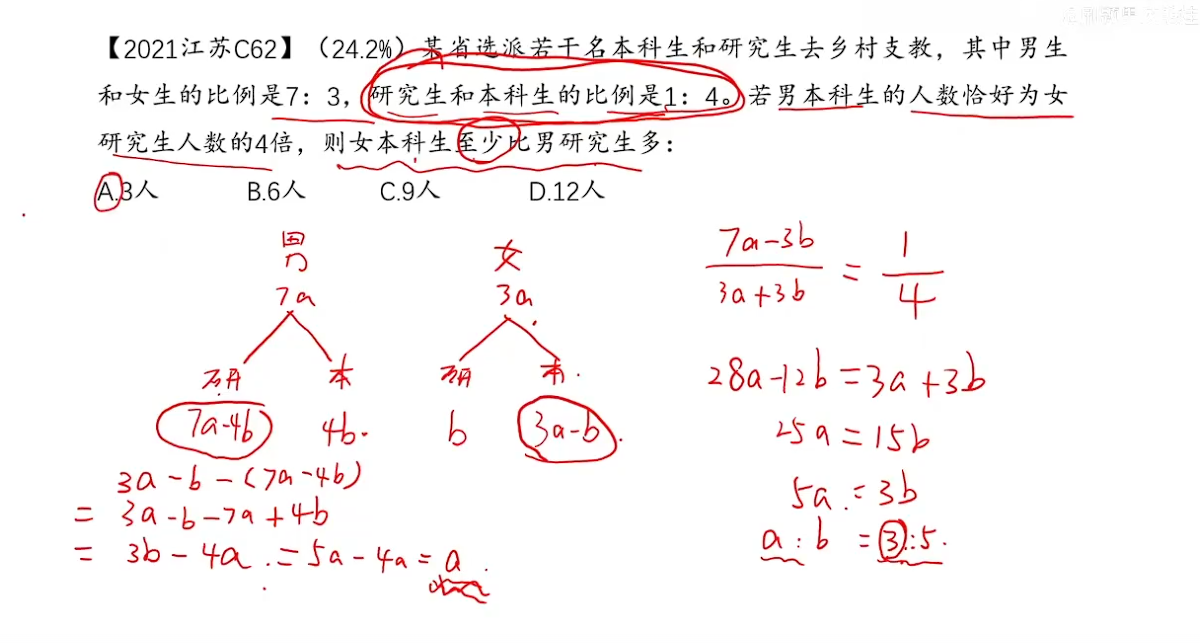 【2021江苏C62】（24.2%）某省选派若干名本科生和研究生去乡村支教，其中男生
和女生的比例是7：3，研究生和本科生的比例是1：4。若男本科生的人数恰好为女
研究生人数的4倍，则女本科生至少比男研究生多：
A.3人 B.6人 C.9人 D.12人
男 女
7a 3a
研 本 研 本
7a-4b 4b b 3a-b
3a-b-(7a-4b)
= 3a-b-7a+4b
= 3b-4a = 5a-4a = a
7a-3b
3a+3b
=
1
4
28a-12b=3a+3b
25a=15b
5a=3b
a:b=3:5